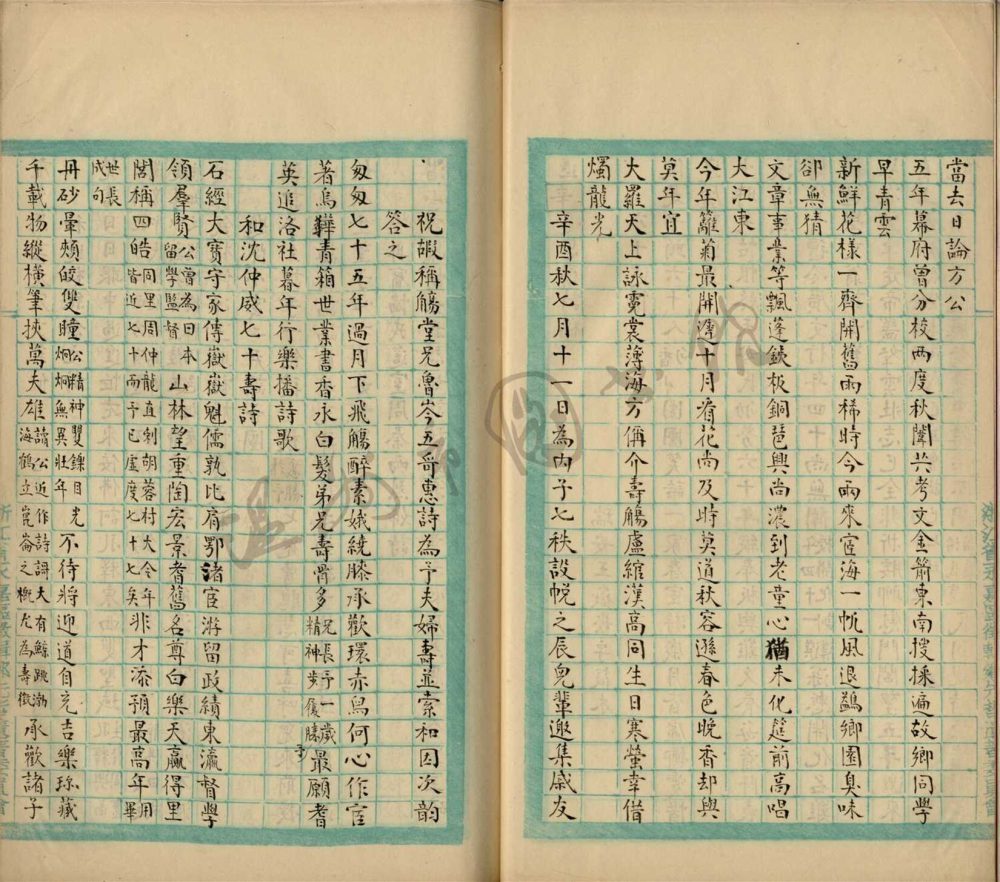 當去日論方公
五年幕府曾分校兩度秋闈共考文金箭東南搜採遍故鄉同學
早青雲
新鮮花樣一齊開舊雨稀時今雨來宦海一帆風退鷁鄉園臭味
卻無猜
文章事業等飄蓬鐵板銅琶興尚濃到老童心猶未化筵前高唱
大江東
今年籬菊最開遲十月看花尚及時莫道秋容遜春色晚香却與
莫年宜
大羅天上詠霓裳薄海方偁介壽觴盧綰漢高同生日寒螢幸借
燭龍光
辛酉秋七月十一日為內子七秩設帨之辰兒輩邀集戚友
祝嘏稱觴堂兄魯岑五哥惠詩為予夫婦壽並索和因次韵
答之
匆匆七十五年過月下飛觴醉素娥繞膝承歡環赤舄何心作官
著烏鞾青箱世業書香永白髮弟兄壽骨多兄長予一歲精神步履勝予最願耆
英追洛社暮年行樂播詩歌
和沈仲威七十壽詩
石經大寶守家傳嶽嶽魁儒孰比肩鄂渚官游留政績東瀛督學
領羣賢公曾為日本留學監督山林望重陶宏景耆舊名尊白樂天贏得里
閭稱四皓同里周仲龍直刺胡蓉村大令年皆近七十而予已虛度七十七矣非才添預最高年用畢
世長成句
丹砂暈頰皎雙瞳公精神矍鑠目光炯炯無異壯年不待將迎道自充吉樂珎藏
千載物縱橫筆挾萬夫雄讀公近作詩謌大有鯨跳渤海鶴立崑崙之概尤為壽徵承歡諸子